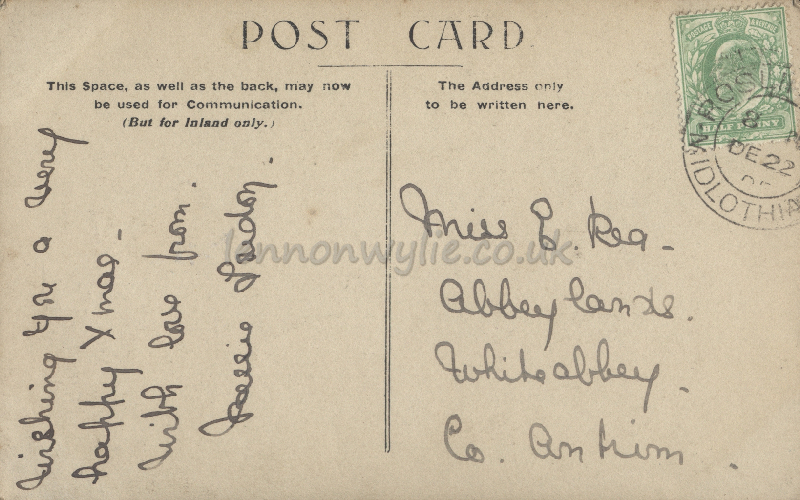 POST CARD
This Space, as well as the back, may now
be used for Communication.
(But for Inland only.)
The Address only
to be written here.
POSTAGE REVENUE
HALFPENNY
8
DE 22
MIDLOTHIA
Wishing you a very
happy Xmas -
With love from.
Jessie
Miss E. Rea -
Abbeylands.
Whiteabbey -
Co. Antrim.
lennonwylie.co.uk